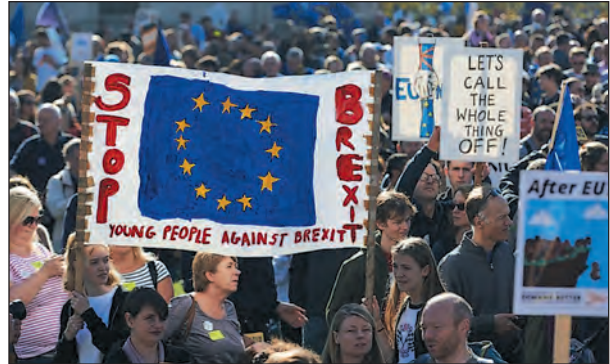 STOP
BREXIT
YOUNG PEOPLE AGAINST BREXIT
EU
LET'S
CALL
THE
WHOLE
THING
OFF!
After EU